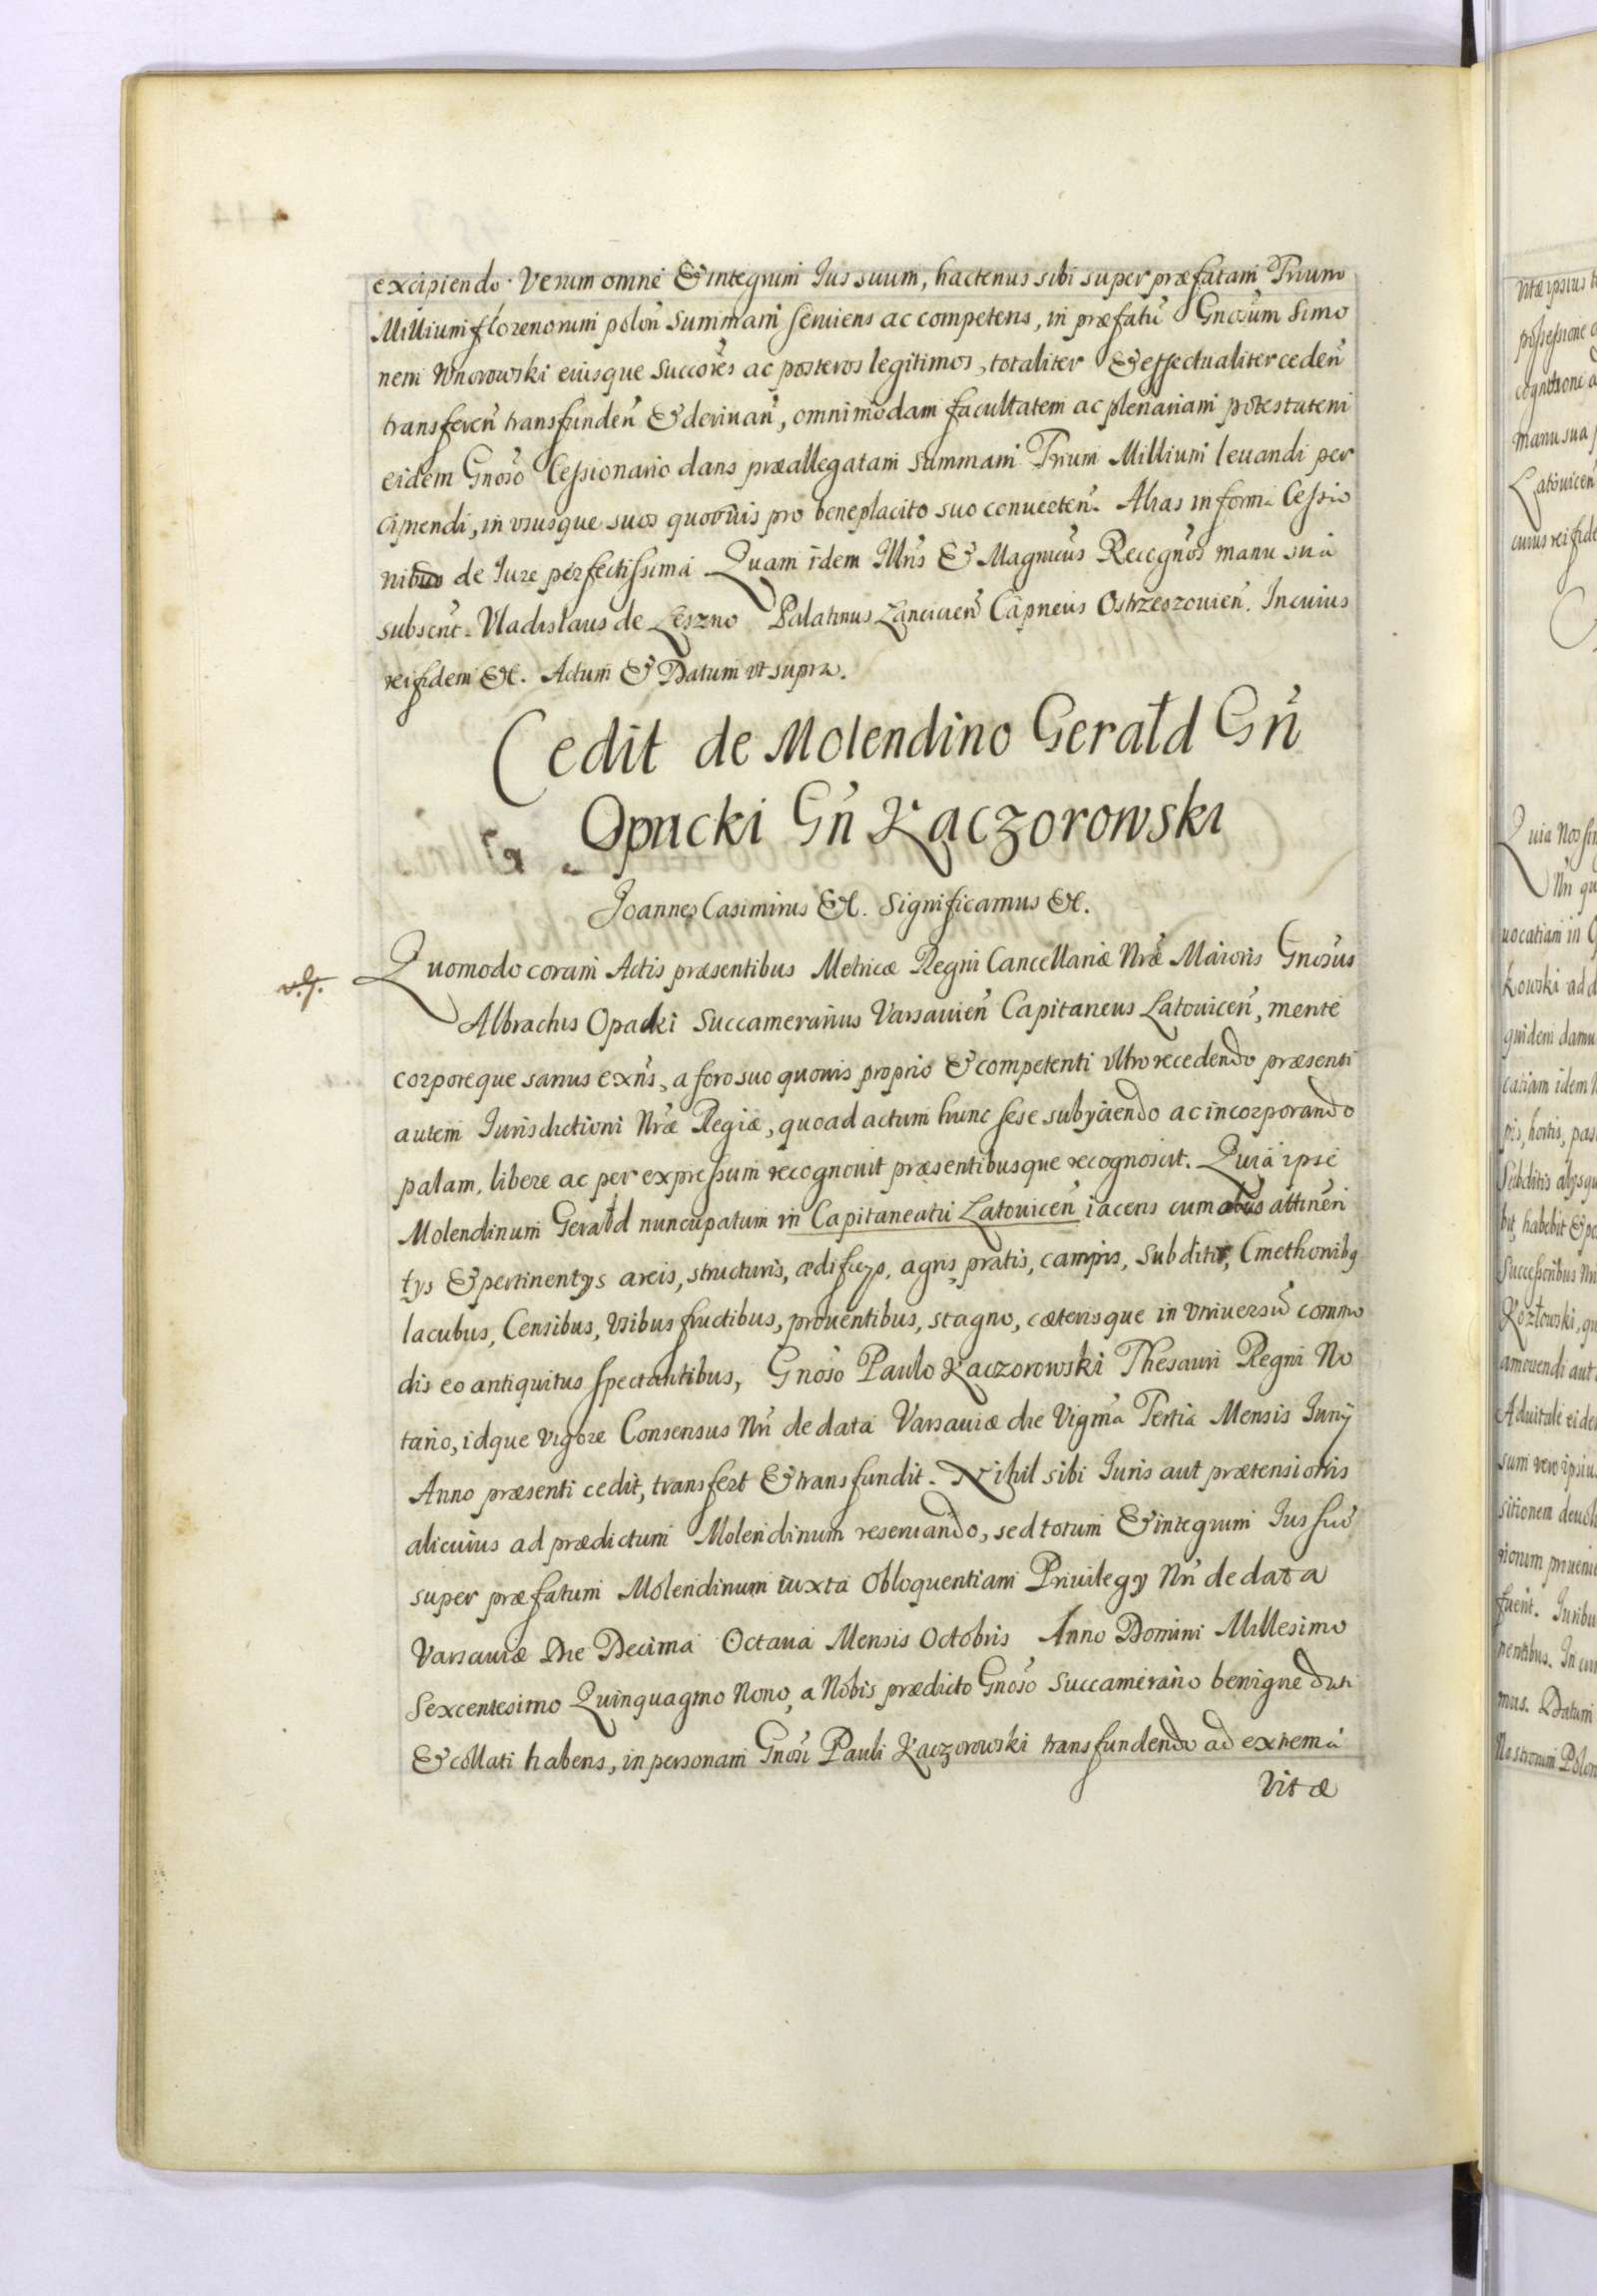 excipiendo. Verum omne & integrum Jus suum, hactenus sibi super præfatam Trium
Millium florenorum polon̄ summam seruiens ac competens, in præfatū Gnosum Simo
nem Wnorowski eiusque succōres ac posteros legitimos, totaliter & effectualiter ceden̄
transferen̄ transfunden̄ & deriuan̄, omnimodam facultatem ac plenariam potestatem
eidem Gnoso Cessionario dans præallegatam summam Trium Millium leuandi per
cipiendi, in vsusque suos quosuis pro beneplacito suo conuerten̄. Alias in forma Cessio
nibus de Jure perfectissima Quam idem Illris & Magnicus Recognos manu sua
subscrit. Vladislaus de Leszno Palatinus Lancicien̄ Capneus Ostrzeszouien̄. In cuius
rei fidem &c. Actum & Datum vt supra.
Cedit de Molendino Gerałd Gn̄
Opacki Gn̄ Kaczorowski
Joannes Casimirus &c. Significamus &c.
v.g. Quomodo coram Actis præsentibus Metricæ Regni Cancellariæ Nræ Maioris Gnosus
Albrachtus Opacki Succamerarius Varsauien̄ Capitaneus Latouicen̄, mente
corporeque sanus exn̄s, a foro suo quouis proprio & competenti vltro recedendo præsenti
autem Jurisdictioni Nræ Regiæ, quoad actum hunc sese subijciendo ac incorporando
palam, libere ac per expressum recognouit præsentibusque recognoscit. Quia ipse
Molendinum Gerałd nuncupatum in Capitaneatu Latouicen̄ iacens cum oībus attinen̄
tijs & pertinentijs areis, structuris, ædificijs, agris, pratis, campis, subditis, Cmethonibq
lacubus, Censibus, vsibus fructibus, prouentibus, stagno, cæterisque in vniuersū commo
dis eo antiquitus spectantibus, Gnoso Paulo Kaczorowski Thesauri Regni No
tario, idque vigore Consensus Nri de data Varsauiæ die Vigma Tertia Mensis Junij
Anno præsenti cedit, transfert & transfundit. Nihil sibi Juris aut prætensionis
alicuius ad prædictum Molendinum reseruando, sed totum & integrum Jus suū
super præfatum Molendinum iuxta obloquentiam Priuilegij Nri de data
Varsauiæ Die Decima Octaua Mensis Octobris Anno Domini Millesimo
Sexcentesimo Quinquagmo Nono, a Nobis prædicto Gnoso Succamerario benigne dati
& collati habens, in personam Gnosi Pauli Kaczorowski transfundendo ad extrema
Vitæ